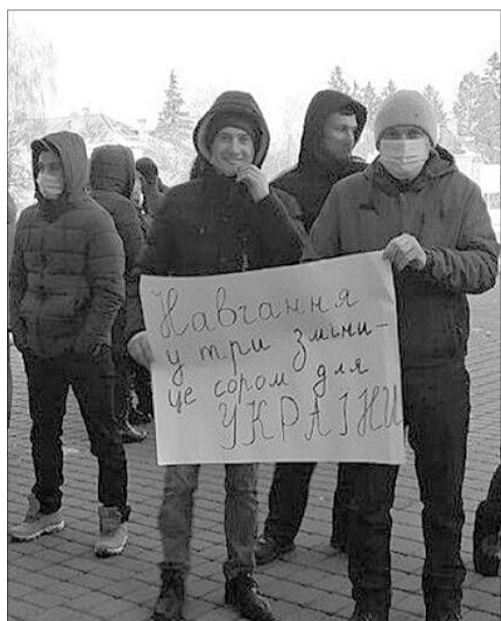 Навчання
у три зміни –
це сором для
УКРАЇНИ